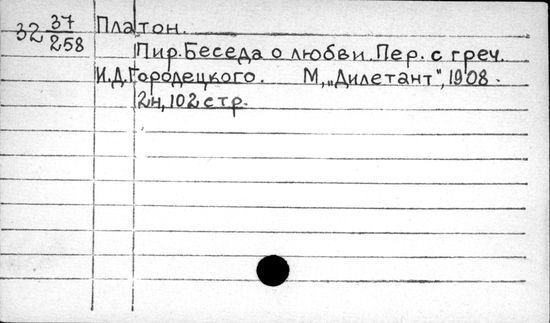 32 37/258 Платон.
Пир. Беседа о любви. Пер. с греч.
И.Д. Городецкого. М, „Дилетант", 1908.
2н, 102 стр.